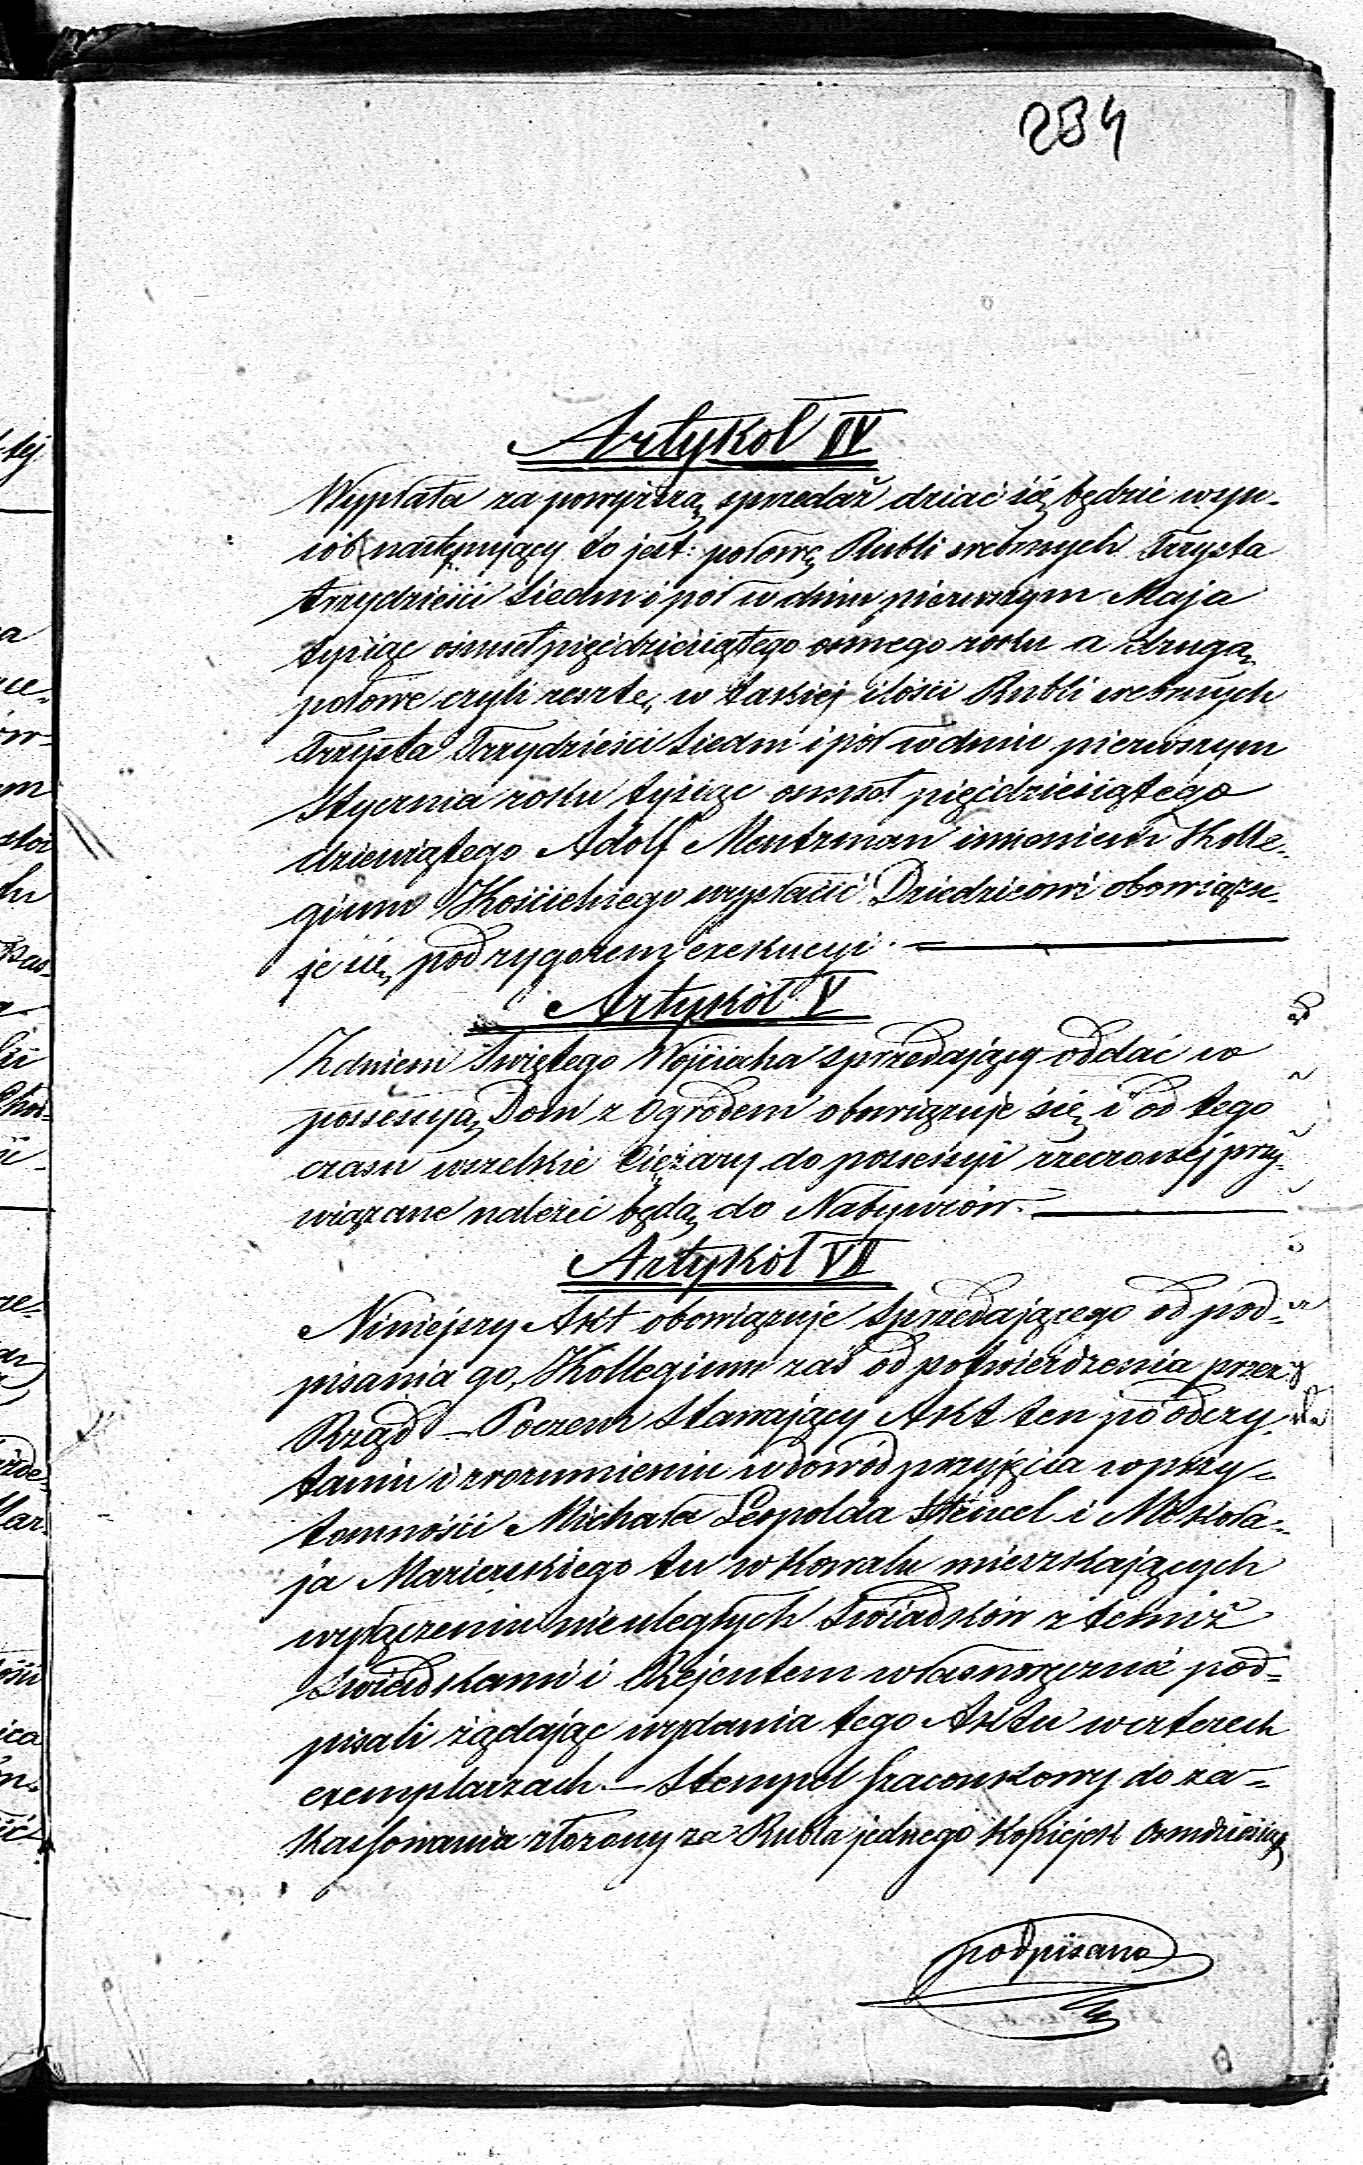 234
Artykół IV
Wypłata za powyższą sprzedaż dziać się będzie wspo-
sób następujący to jest: połowę Rubli srebrnych Trzysta
trzydzieści siedm i pół w dniu pierwszym Maja
tysiąc ośmset pięćdziesiątego osmego roku a drugą
połowe czyli resztę, w takiej ilości Rubli srebrnych
Trzysta Trzydzieści Siedm i pół w dniu pierwszym
Stycznia roku tysiąc osmset pięćdziesiątego
dziewiątego Adolf Mentzman imieniem Kolle-
gium Kościelnego wypłacić Dziedzicowi obowiązu-
je się, pod rygorem exekucyi.
Artykół V
Z dniem Świętego Wojciecha sprzedający oddać w
possessyą Dom z Ogrodem obowiązuje się, i od tego
czasu wszelkie Ciężary do possessyi rzeczonéj przy-
wiązane należeć będą do Nabywców.
Artykół VI
Niniejszy Akt obowiązuje Sprzedającego od pod-
pisania go, Kollegium zaś od potwierdzenia przez
Rząd – Poczem Stawający Akt ten po odczy-
taniu i zrozumieniu w dowód przyjęcia w przy-
tomności Michała Leopolda Stencel i Mikoła-
ja Marierskiego tu w Kowalu mieszkających
wyłączeniu nieuległych Świadków z temiż
Świadkami i Rejentem własnoręcznie pod-
pisali żądając wydania tego Aktu w czterech
exemplarzach. – Stempel szacunkowy do za-
kassowania złożony za Rubla jednego Kopiejek Osmdziesiąt
podpisano